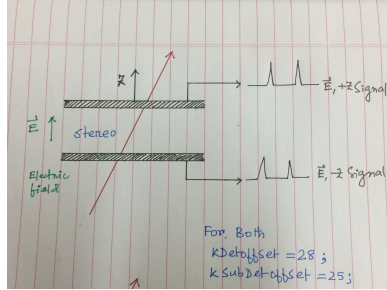 Z
E, +Z Signal
E
Stereo
Electric
field
E, -Z Signal
For, Both
KDetoffset = 28 ;
KSubDetoffset = 25;